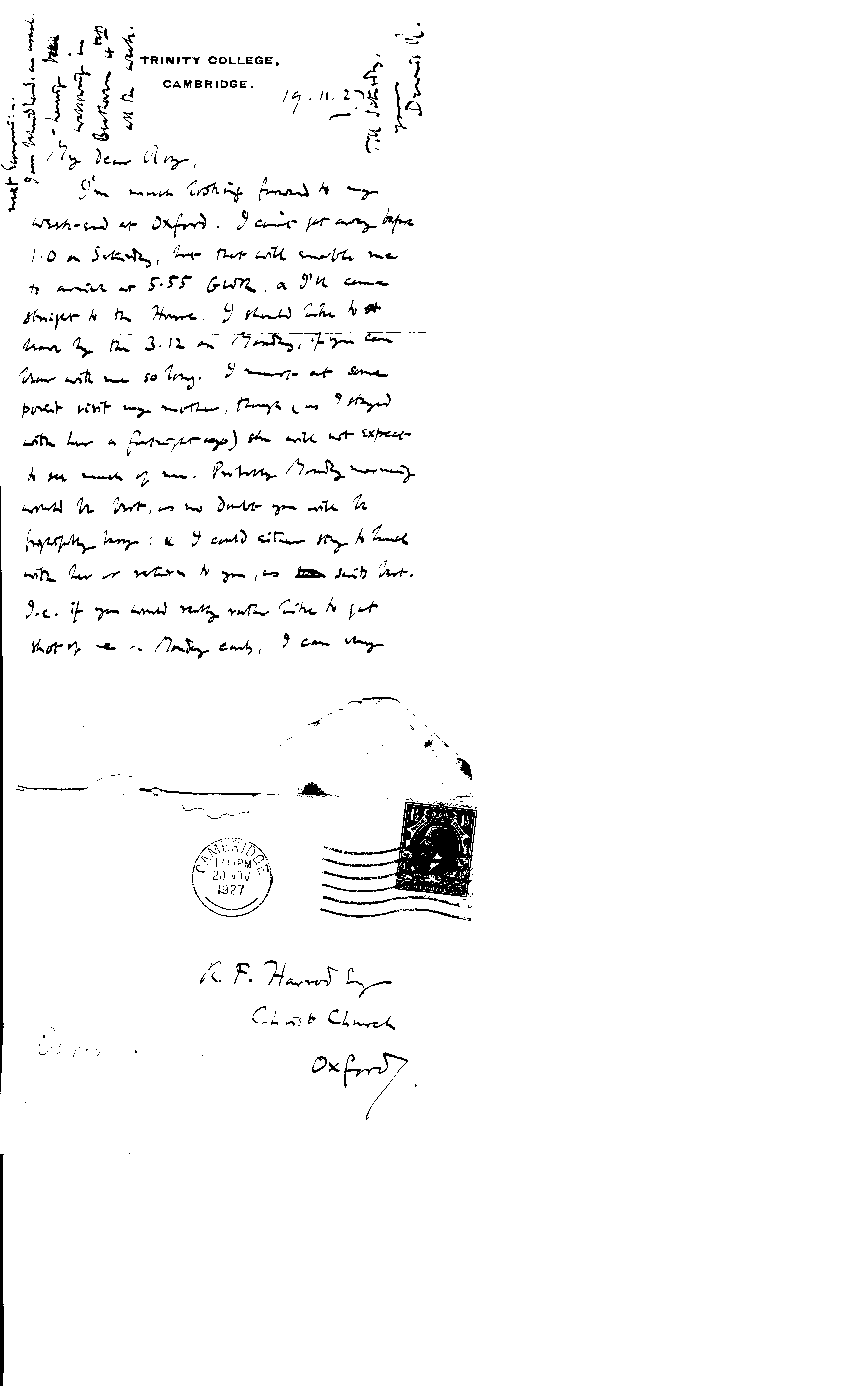 TRINITY COLLEGE,
CAMBRIDGE.
19.11.27
My Dear Roy,
I'm much looking forward to my
week-end at Oxford. I can't get away before
1.0 on Saturday, but that will enable me
to arrive at 5.55 GWR, & I'll come
straight to the House. I should like to
leave by the 3.12 on Monday, if you can
bear with me so long. I must at some
point visit my mother, though (as I stayed
with her a fortnight ago) she will not expect
to see much of me. Probably Monday morning
would be best, as no doubt you will be
frightfully busy: & I could either stay to lunch
with her or return to you, as suits best.
I.e. if you would really rather like to get
shot of me on Monday early, I can
next Economica.
I am
having
wallowing in
all the week.
Till Saturday,
yours
Dennis R.
CAMBRIDGE
PM
20 NOV
1927
R. F. Harrod Esq
Christ Church
Oxford